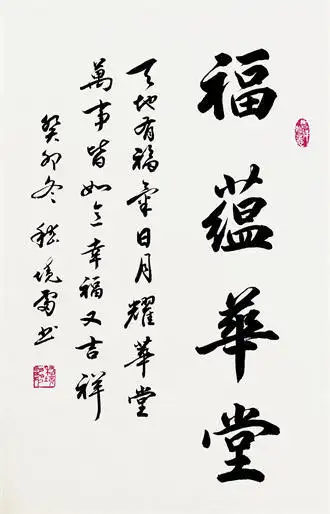 福蕴華堂
天地有福氣日月耀華堂
萬事皆如意幸福又吉祥
癸卯冬 嵇境雷书